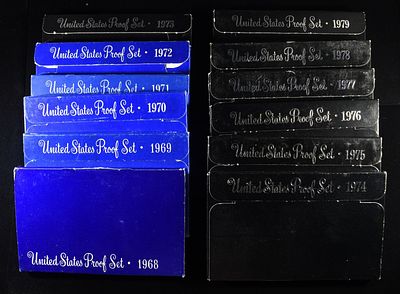 United States Proof Set • 1973
United States Proof Set • 1972
United States Proof Set • 1971
United States Proof Set • 1970
United States Proof Set • 1969
United States Proof Set • 1968
United States Proof Set • 1979
United States Proof Set • 1978
United States Proof Set • 1977
United States Proof Set • 1976
United States Proof Set • 1975
United States Proof Set • 1974